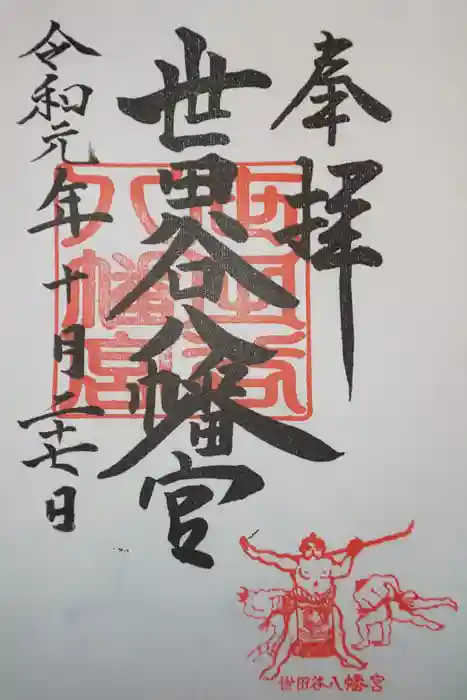 奉拝
世田谷八幡宮
令和元年十月二十七日
世田谷
八幡宮
世田谷八幡宮